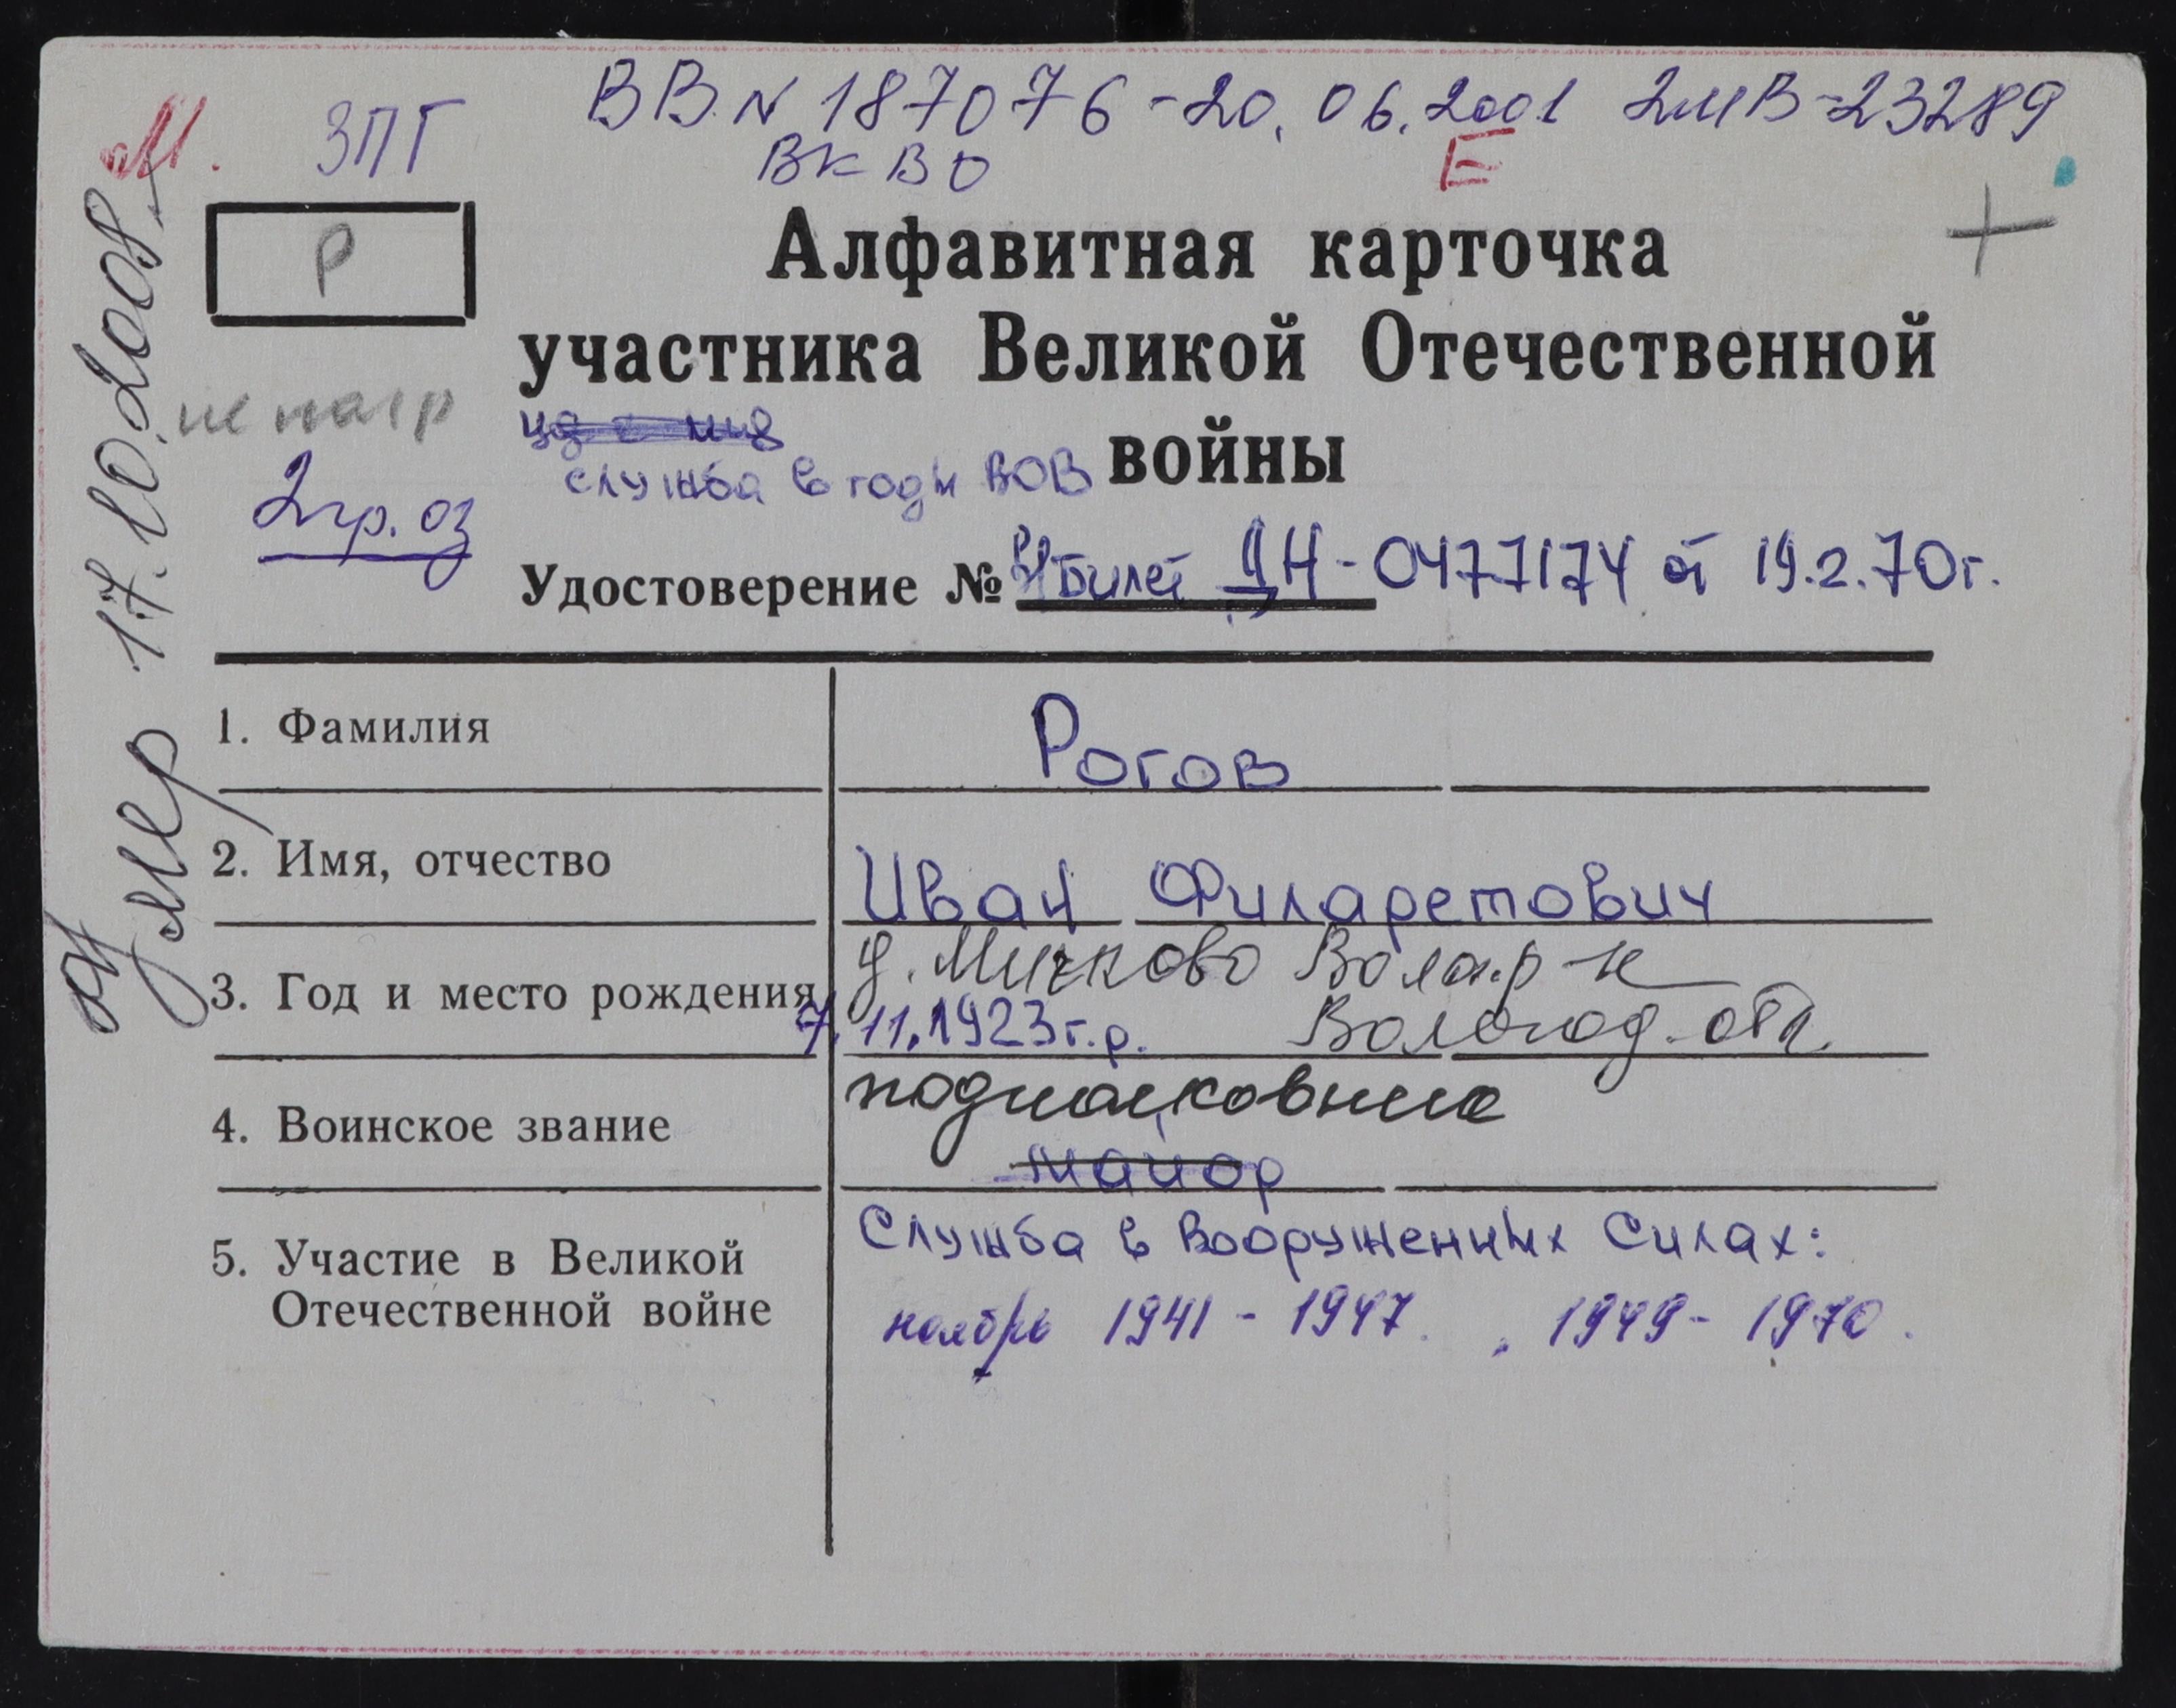 М.
ЗПГ
ВВ. N 187076 - 20.06.2001 2МВ-23289
ВКВО
Е
Р
+
Алфавитная карточка
участника Великой Отечественной
войны
не нагр
служба в годы ВОВ
2 гр. оз
Удостоверение № в/билет ЦН-0477174 от 19.2.70г.
умер 17.10.2008
1. Фамилия
Рогов
2. Имя, отчество
Иван Филаретович
3. Год и место рождения
д. Мичково Волог. р-н
7.11.1923г.р. Волог­од. обл.
4. Воинское звание
подполковник
майор
5. Участие в Великой
Отечественной войне
Служба в Вооруженных Силах:
ноябрь 1941 - 1947. , 1949 - 1970.